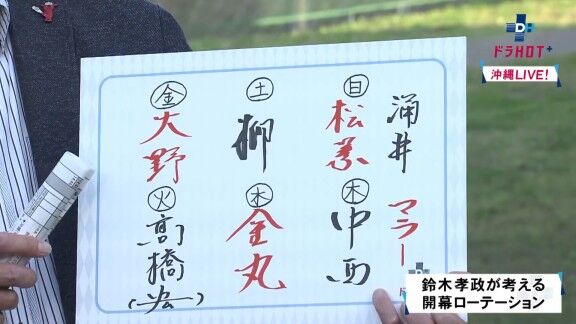 ドラHOT+
沖縄LIVE!
金 大野
土 柳
日 松葉
涌井
火 高橋(宏)
水 金丸
木 中西
マラー
鈴木孝政が考える
開幕ローテーション